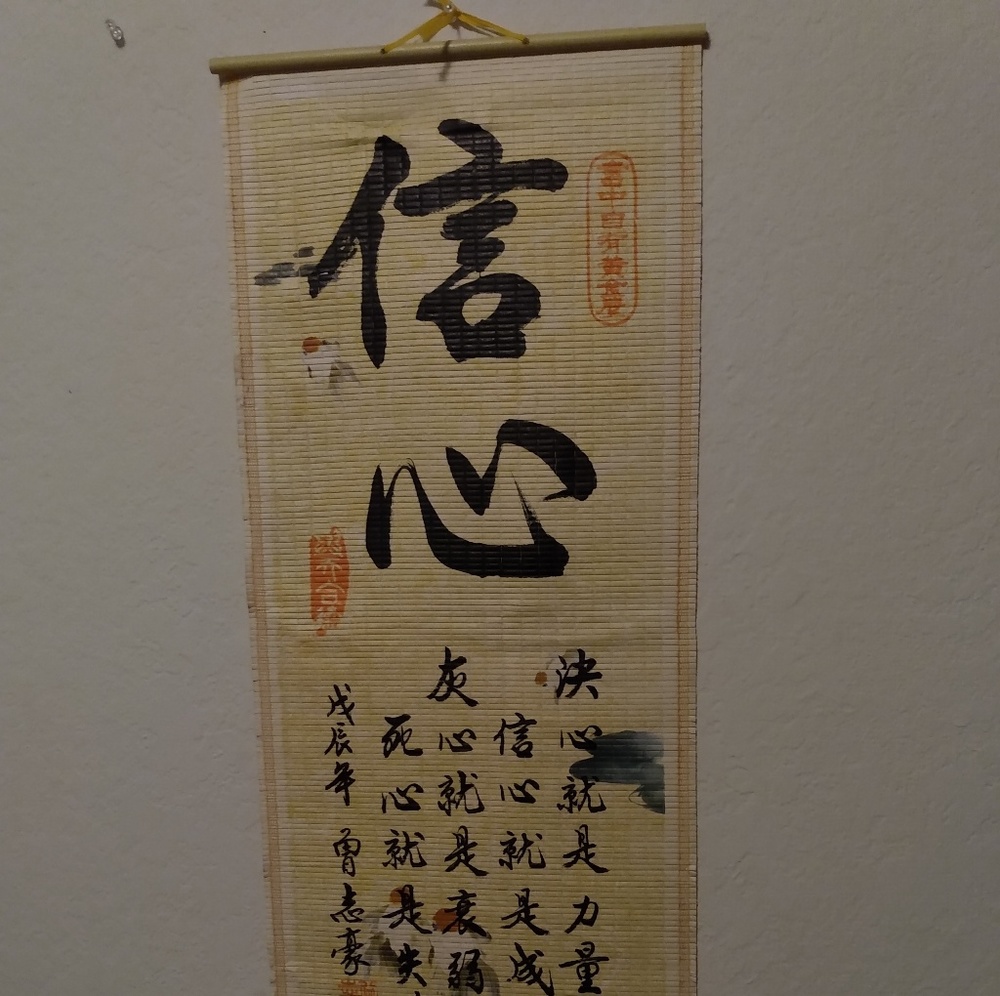 信心
決心就是力量
信心就是成
灰心就是衰弱
死心就是失
戊辰年 曾志豪
書中自有黃金屋